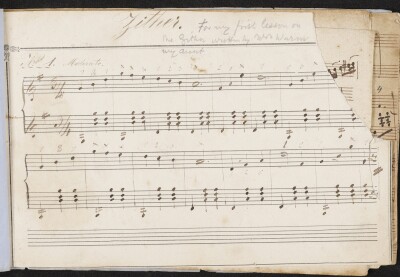 Zither.
For my first lesson on
the Zither written by
my Aunt
No 1. Moderato